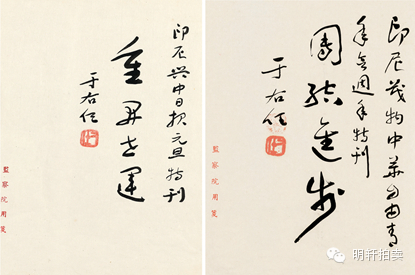 印尼興中日報元旦特刊
重世運
于右任
監察院用箋
印尼茂物中華自由青
年會週年特刊
團結進步
于右任
監察院用箋
明轩拍卖